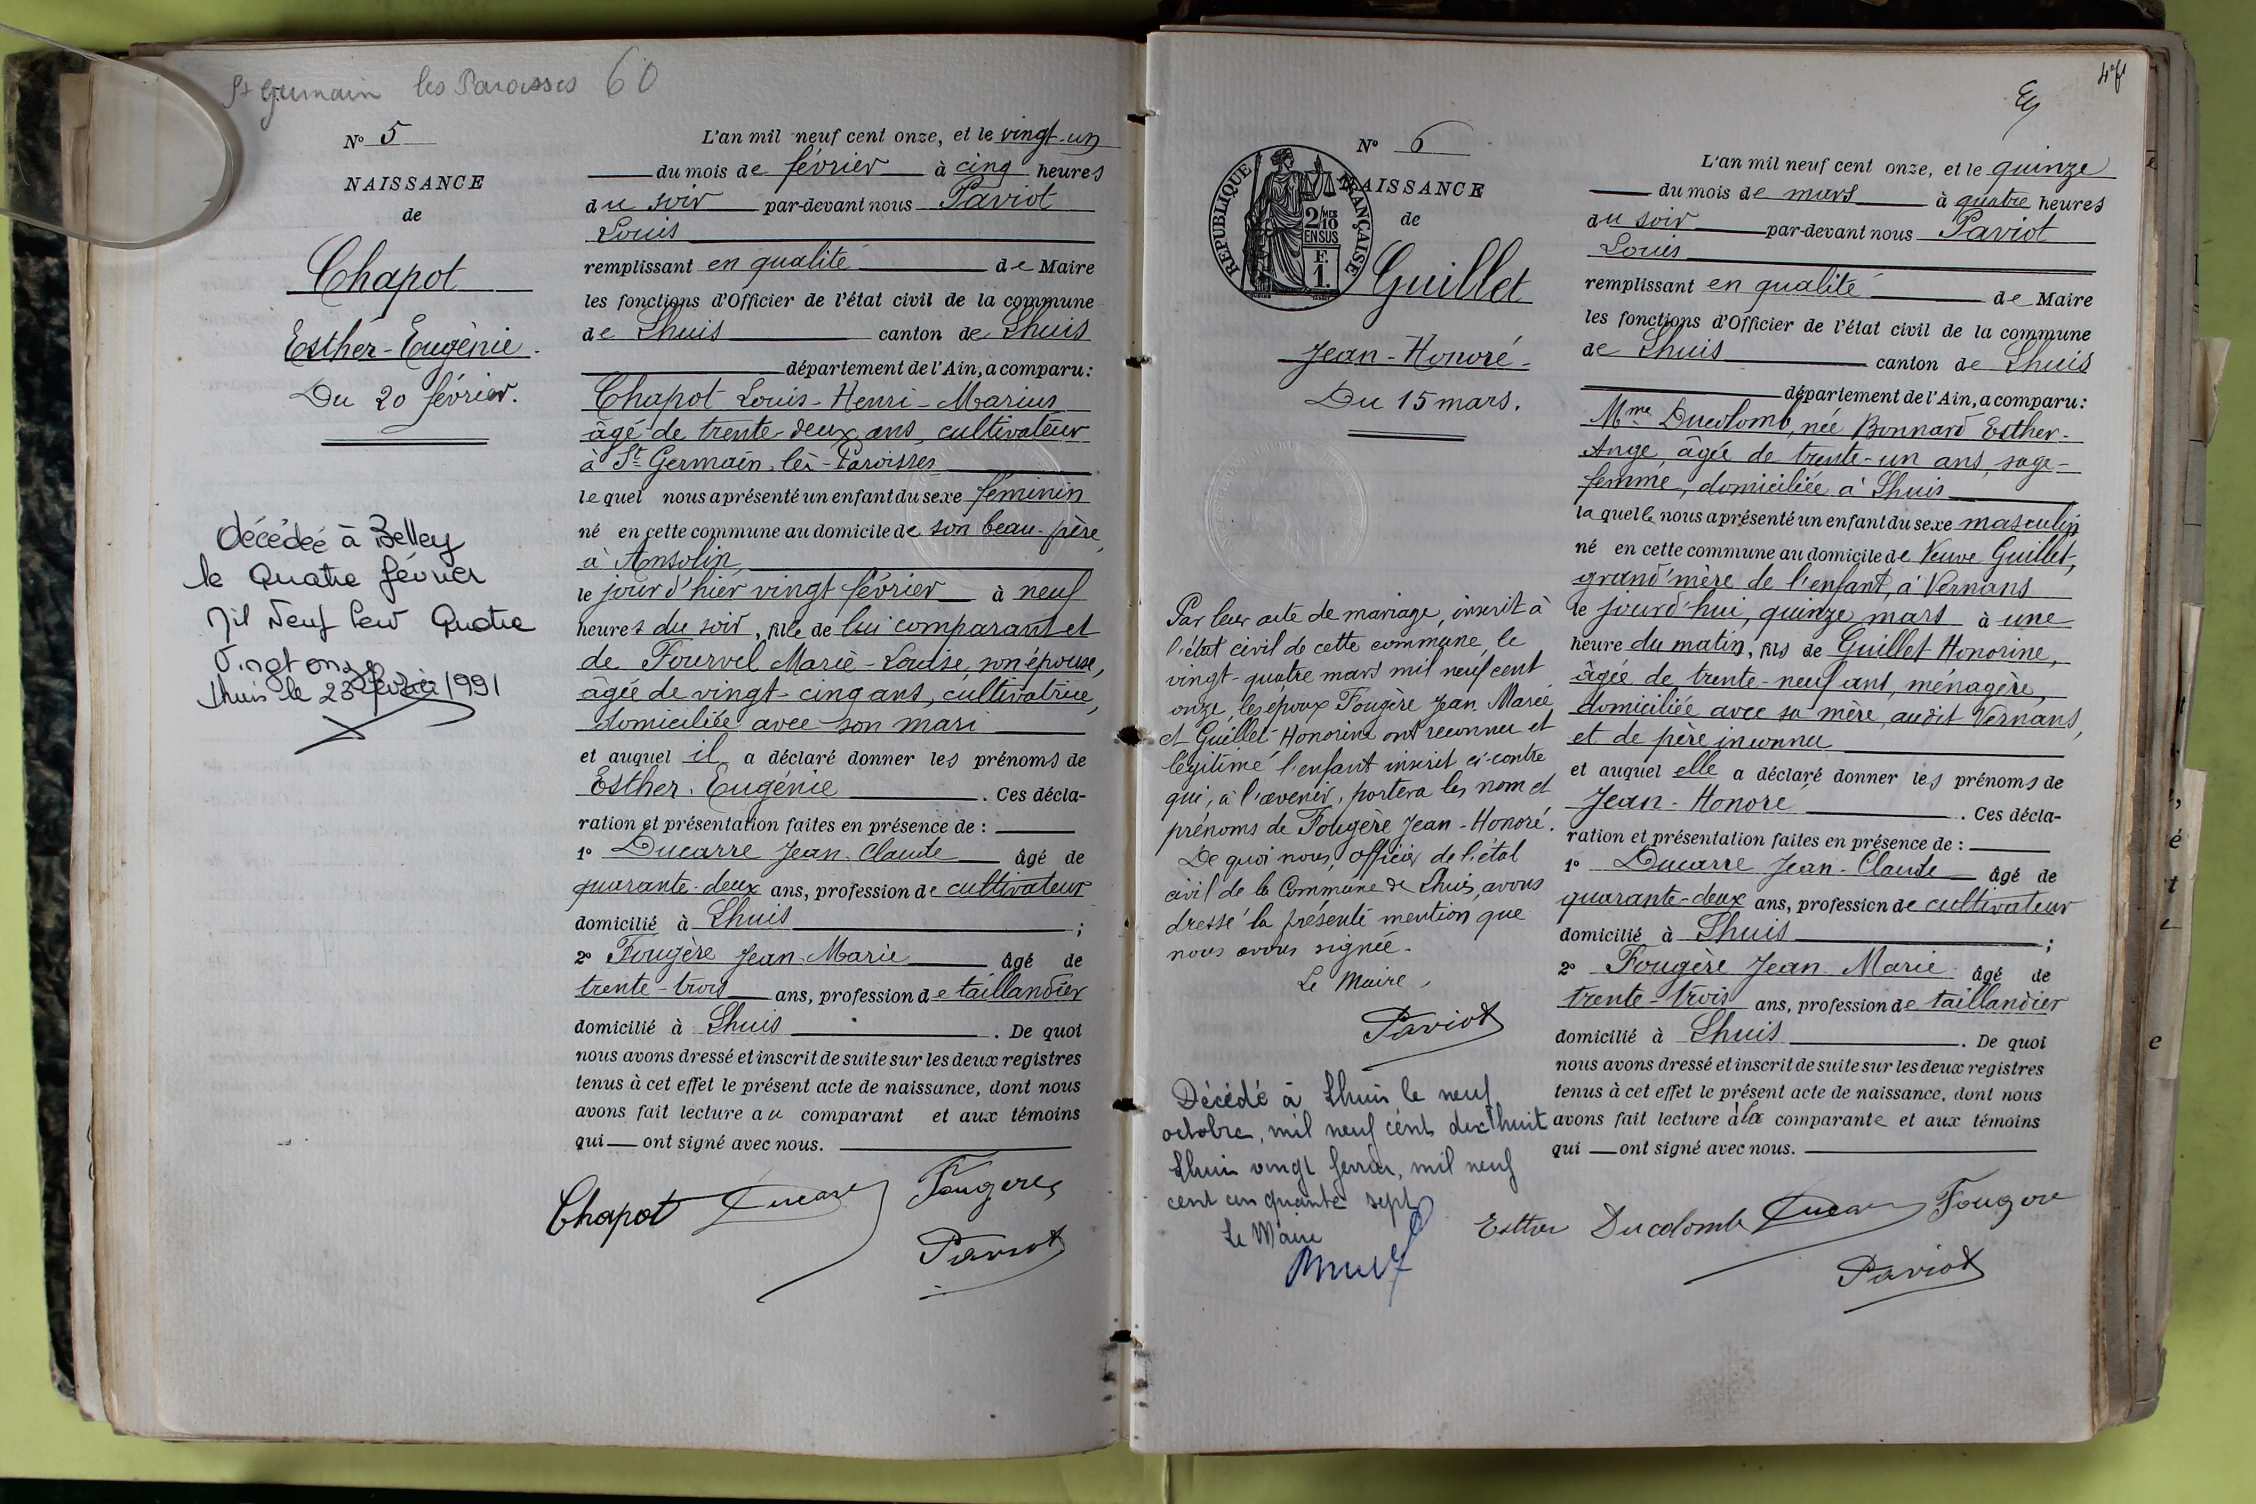 St Germain les Paroisses 60
N° 5
NAISSANCE
de
Chapot
Esther-Eugénie.
Du 20 février.
décédée à Belley
le Quatre février
Mil Neuf Cent Quatre
Vingt onze
Lhuis le 23 février 1991
L'an mil neuf cent onze, et le vingt-un
du mois de février à cinq heures
du soir par-devant nous Paviot
Louis
remplissant en qualité de Maire
les fonctions d'Officier de l'état civil de la commune
de Lhuis canton de Lhuis
département de l'Ain, a comparu:
Chapot Louis-Henri-Marius
âgé de trente-deux ans, cultivateur
à St Germain-les-Paroisses
lequel nous a présenté un enfant du sexe féminin
né en cette commune au domicile de son beau-père,
à Ansolin,
le jour d'hier vingt février à neuf
heures du soir, fille de lui comparant et
de Fourvel Marie-Louise, son épouse,
âgée de vingt-cinq ans, cultivatrice,
domiciliée avec son mari
et auquel il a déclaré donner les prénoms de
Esther-Eugénie. Ces décla-
ration et présentation faites en présence de :
1° Ducarre Jean-Claude âgé de
quarante-deux ans, profession de cultivateur
domicilié à Lhuis ;
2° Fougère Jean-Marie âgé de
trente-trois ans, profession de taillandier
domicilié à Lhuis. De quoi
nous avons dressé et inscrit de suite sur les deux registres
tenus à cet effet le présent acte de naissance, dont nous
avons fait lecture au comparant et aux témoins
qui ont signé avec nous.
Chapot Ducarre Fougere
Paviot
N° 6
NAISSANCE
de
REPUBLIQUE FRANÇAISE
2/10 EN SUS
F.
1.
Guillet
Jean-Honoré-
Du 15 mars.
Par leur acte de mariage, inscrit à
l'état civil de cette commune, le
vingt-quatre mars mil neuf cent
onze, les époux Fougère Jean Marie
et Guillet Honorine ont reconnu et
légitimé l'enfant inscrit ci-contre
qui, à l'avenir, portera les nom et
prénoms de Fougère Jean-Honoré.
De quoi nous, officier de l'état
civil de la Commune de Lhuis, avons
dressé la présente mention, que
nous avons signée.
Le Maire,
Paviot
Décédé à Lhuis le neuf
octobre, mil neuf cent dix huit
Lhuis vingt fevrier, mil neuf
cent cinquante sept
Le Maire
L'an mil neuf cent onze, et le quinze
du mois de mars à quatre heures
du soir par-devant nous Paviot
Louis
remplissant en qualité de Maire
les fonctions d'Officier de l'état civil de la commune
de Lhuis canton de Lhuis
département de l'Ain, a comparu:
Mme Ducolomb, née Bonnard Esther-
Ange, âgée de trente-un ans, sage-
femme, domiciliée à Lhuis
laquelle nous a présenté un enfant du sexe masculin
né en cette commune au domicile de Veuve Guillet,
grand'mère de l'enfant, à Vernans
le jourd'hui, quinze mars à une
heure du matin, fils de Guillet Honorine,
âgée de trente-neuf ans, ménagère,
domiciliée avec sa mère, audit Vernans,
et de père inconnu
et auquel elle a déclaré donner les prénoms de
Jean-Honoré. Ces décla-
ration et présentation faites en présence de :
1° Ducarre Jean-Claude âgé de
quarante-deux ans, profession de cultivateur
domicilié à Lhuis ;
2° Fougère Jean Marie âgé de
trente-trois ans, profession de taillandier
domicilié à Lhuis. De quoi
nous avons dressé et inscrit de suite sur les deux registres
tenus à cet effet le présent acte de naissance, dont nous
avons fait lecture à la comparante et aux témoins
qui ont signé avec nous.
Esther Ducolomb Ducarre Fougere
Paviot